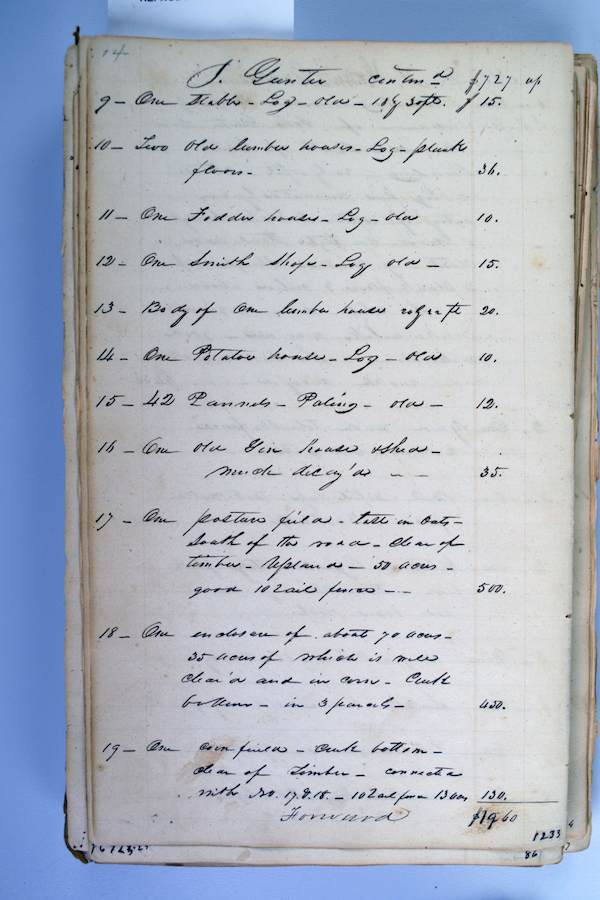 14
J. Gunter contin'd $727
9 - One Stable - Log - old - 18 by 30 ft. $ 15.
10 - Two old lumber houses - Log - plank
floors - 36.
11 - One Fodder house - Log - old 10.
12 - One Smith Shop - Log old - 15.
13 - Body of One lumber house 20 by 22 ft 20.
14 - One Potatoe house - Log - old 10.
15 - 42 Pannels - Paling - old - 12.
16 - One old Gin house & shed -
much decay'd - - 35.
17 - One pasture field - in Oats -
South of the road - Clear of
timber - Upland - 50 acres -
good 10 rail fence - - 500.
18 - One enclosure of about 70 acres -
35 acres of which is well
clear'd and in corn - Creek
bottom - in 3 parcels - 450.
19 - One corn field - creek bottom -
clear of Timber - connected
with No. 17 & 18. - 10 rail fence 13 acres 130.
Forward $1960
1233
86